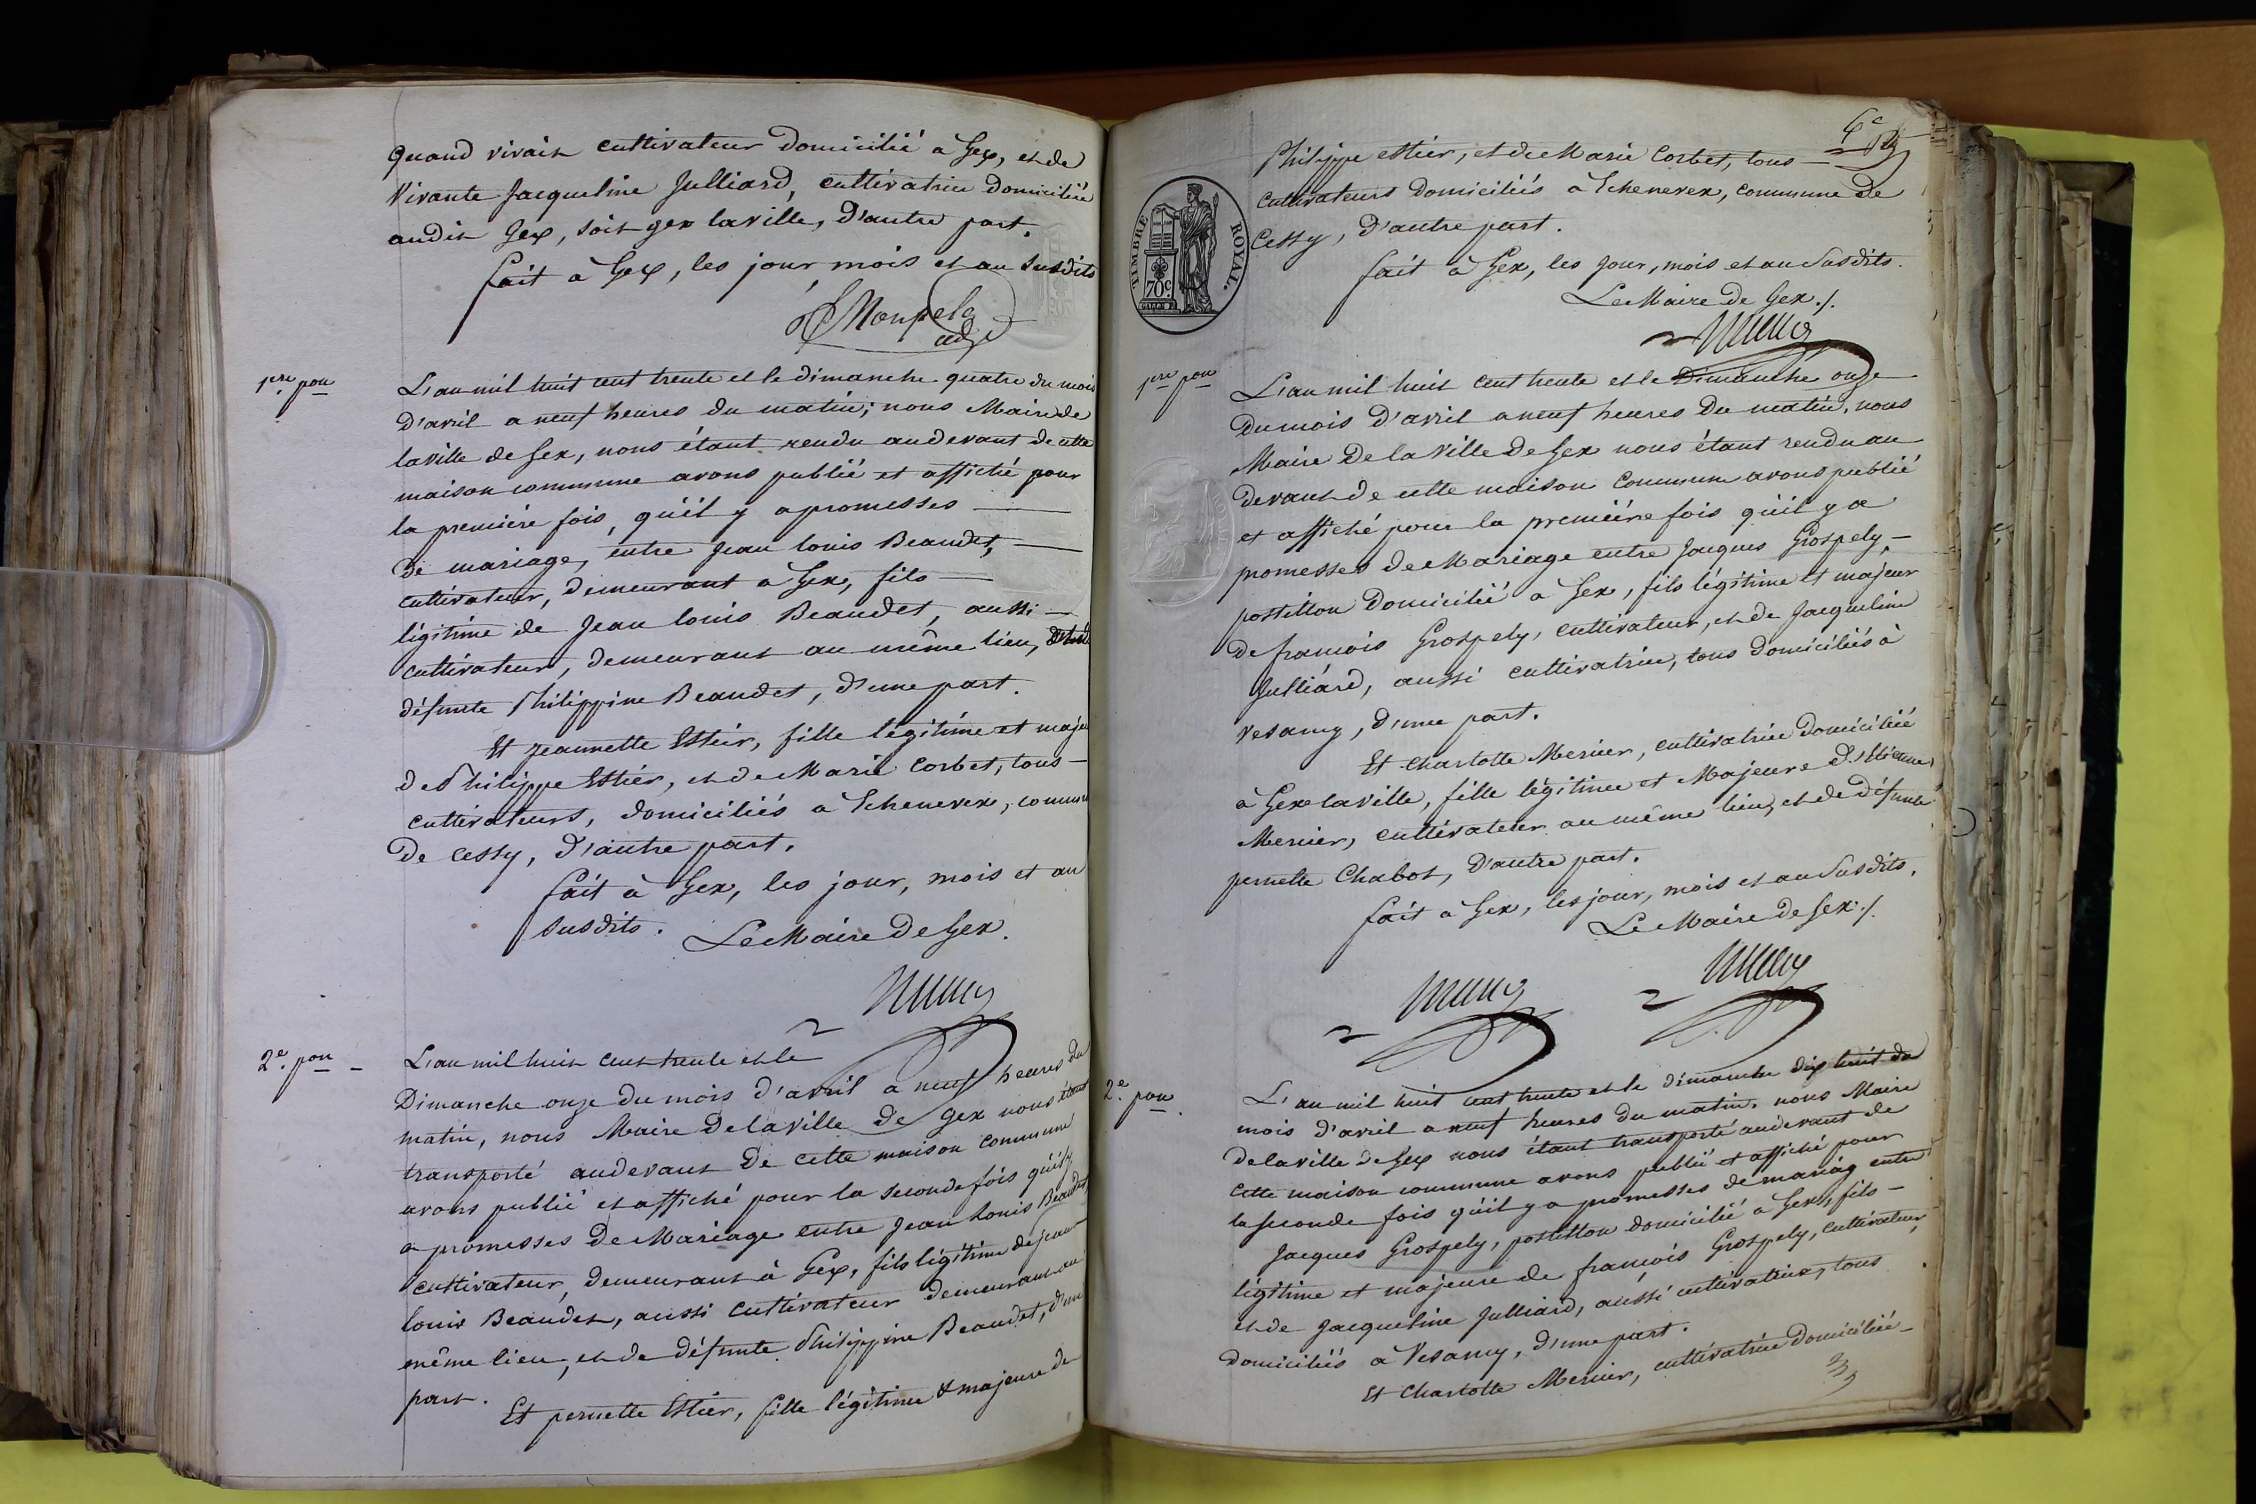 quand vivait cultivateur domicilié à Gex, et de
vivante Jacqueline Julliard, cultivatrice domiciliée
audit Gex, soit gex la ville, d'autre part.
fait à Gex, les jour, mois et an susdits
1ere pon
L'an mil huit cent trente et le dimanche quatre du mois
d'avril a neuf heures du matin; nous Maire de
la ville de Gex, nous étant rendu au devant de cette
maison commune avons publié et affiché pour
la première fois, qu'il y a promesses
de mariage, entre Jean Louis Beaudet,
cultivateur, demeurant a Gex, fils
légitime de Jean Louis Beaudet, aussi
cultivateur, demeurant au même lieu,
défunte Philippine Beaudet, d'une part.
Et Jeannette Estier, fille légitime et maje
de Philippe Estier, et de Marie Corbet, tous
cultivateurs, domiciliés a Echenevex, commune
de Cessy, d'autre part.
fait à Gex, les jour, mois et an
susdits. Le Maire de Gex.
2e. pon
L'an mil huit cent trente et le
Dimanche onze du mois d'avril a neuf heures du
matin, nous Maire de la ville de Gex nous étant
transporté au devant de cette maison commune
avons publié et affiché pour la seconde fois qu'il y
a promesses de Mariage entre Jean Louis Beaudet
cultivateur, demeurant à Gex, fils légitime de jean
louis Beaudet, aussi cultivateur demeurant au
même lieu, et de défunte Philippine Beaudet, d'une
part.
Et pernette Estier, fille légitime & majeure de
6e
Philippe estier, et de Marie Corbet, tous
cultivateurs domiciliés à Echenevex, commune de
Cessy, d'autre part.
fait à Gex, les jour, mois et an susdits.
Le Maire de Gex ./.
TIMBRE ROYAL.
70c.
1ere pon
L'an mil huit cent trente et le Dimanche onze
du mois d'avril a neuf heures du matin, nous
Maire de la ville de Gex nous étant rendu au
devant de cette maison commune avons publié
et affiché pour la première fois qu'il y a
promesses de Mariage entre Jacques Grospely,
postillon domicilié à Gex, fils légitime et majeur
de françois Grospely, cultivateur, et de Jacqueline
Julliard, aussi cultivatrice, tous domiciliés à
Vesancy, d'une part.
Et Charlotte Mercier, cultivatrice domiciliée
à Gex la ville, fille légitime et Majeure d'Etienne
Mercier, cultivateur au même lieu, et de défunte
pernette Chabot, d'autre part.
fait a Gex, les jour, mois et an susdits.
Le Maire de Gex ./.
2e. pon.
L'an mil huit cent trente et le dimanche dix huit du
mois d'avril a neuf heures du matin, nous Maire
de la ville de Gex nous étant transporté au devant de
cette maison commune avons publié et affiché pour
la seconde fois qu'il y a promesses de mariag entre
Jacques Grospely, postillon domicilié a Gex, fils
légitime et majeure de françois Grospely, cultivateur,
et de Jacqueline Julliard, aussi cultivatrice, tous
domiciliés a Vesancy, d'une part.
Et Charlotte Mercier, cultivatrice domiciliée